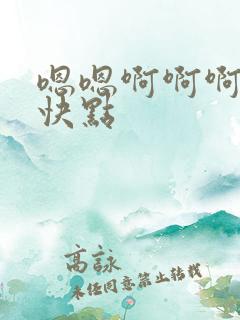 嗯嗯啊啊啊
快點
高詠
未经同意禁止转载